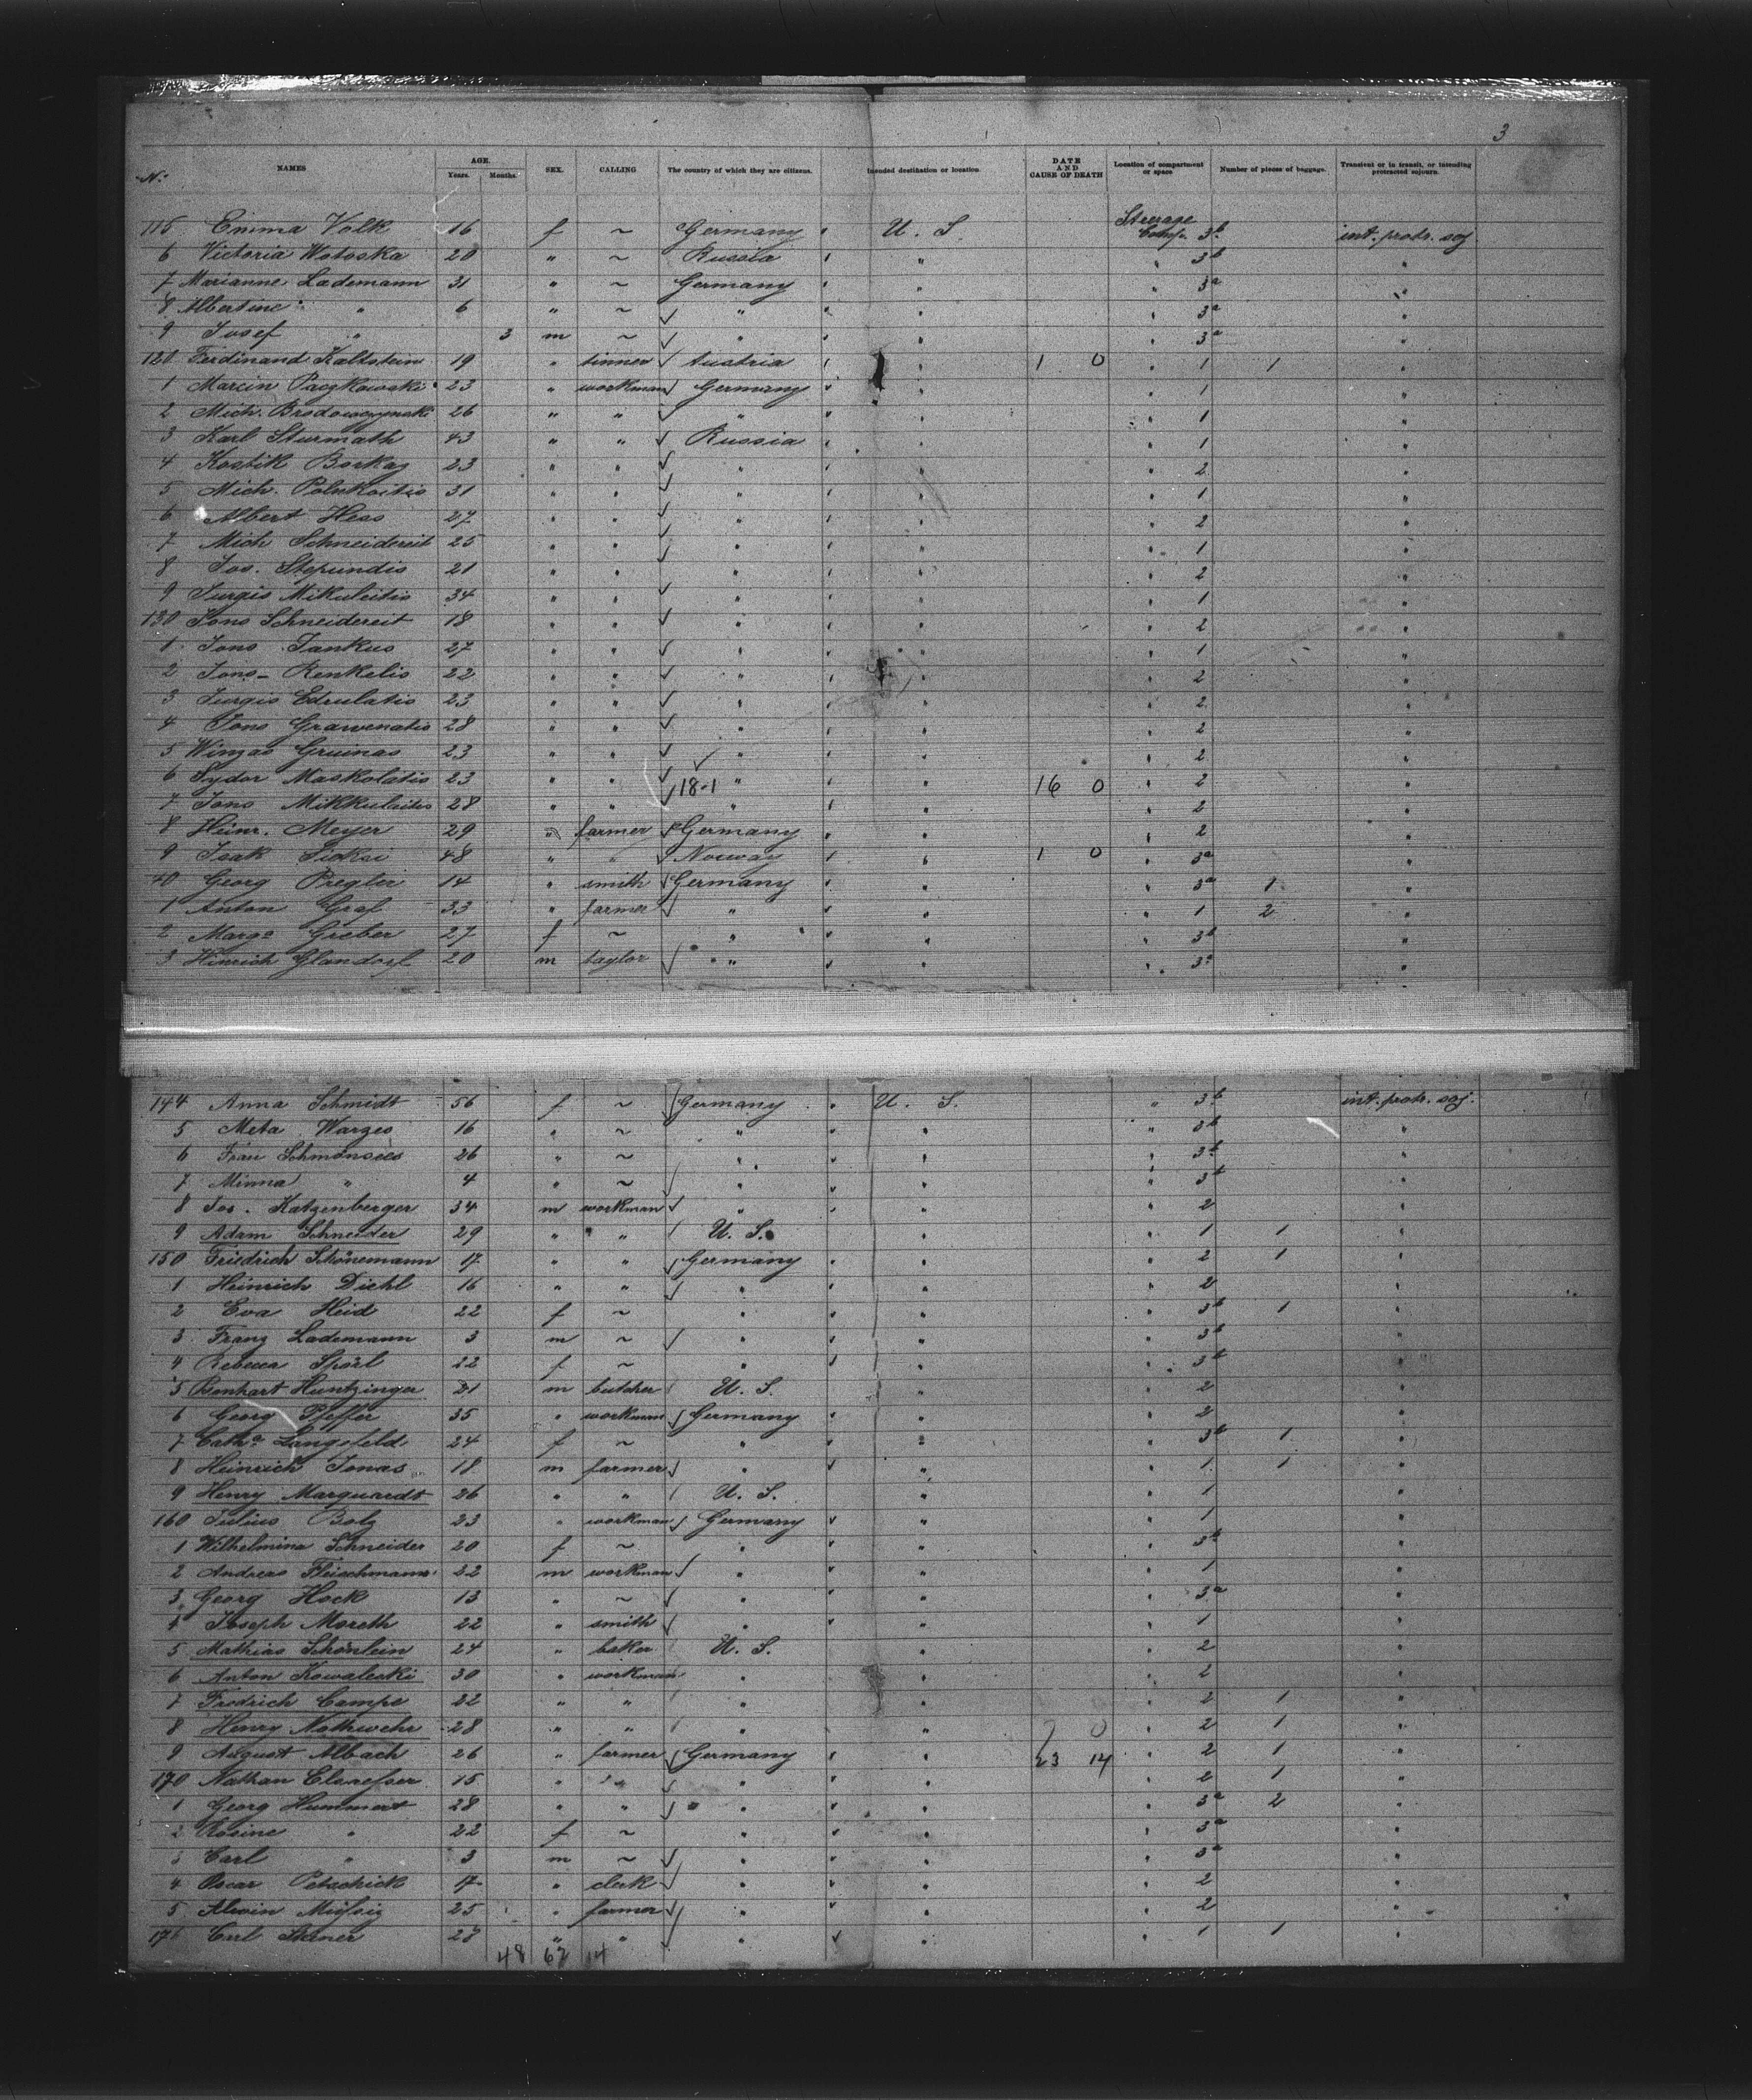 3
No. NAMES AGE. Years. Months. SEX. CALLING The country of which they are citizens. Intended destination or location. DATE AND CAUSE OF DEATH Location of compartment or space Number of pieces of baggage. Transient or in transit, or intending protracted sojourn.
115 Emma Volk 16 f ~ Germany U. S. Steerage Comp. 3b int. protr. soj.
6 Victoria Wotoska 20 " ~ Russia " " 3b "
7 Marianne Lademann 31 " ~ Germany " " 3a "
8 Albertine " 6 " ~ " " " 3a "
9 Josef " 3 m ~ " " " 3a "
120 Ferdinand Kaltstein 19 " tinner Austria " 1 0 " 1 1 "
1 Marcin Paczkowski 23 " workman Germany " " 1 "
2 Mich. 26 " " " " " 1 "
3 Karl Sturmath 43 " " Russia " " 1 "
4 Kostik 23 " " " " " 2 "
5 Mich. 31 " " " " " 1 "
6 Albert Hess 27 " " " " " 2 "
7 Mich Schneidereit 25 " " " " " 1 "
8 Jos. Stepundis 21 " " " " " 2 "
9 Jurgis Mikuleitis 34 " " " " " 1 "
130 Jons Schneidereit 18 " " " " " 2 "
1 Jons Jankus 27 " " " " " 1 "
2 Jons Renkelis 22 " " " " " 2 "
3 Jurgis Edrulatis 23 " " " " " 2 "
4 Jons Grawenatis 28 " " " " " 2 "
5 Winzas Gruinas 23 " " " " " 2 "
6 Sydor Maskolatis 23 " " 18-1 " " 16 0 " 2 "
7 Jons Mikkulaitis 28 " " " " " 2 "
8 Heinr. Meyer 29 " farmer Germany " " 2 "
9 Isak 48 " " Norway " 1 0 " 3a "
40 Georg Pregler 14 " smith Germany " " 3a 1 "
1 Anton Graf 33 " farmer " " " 1 2 "
2 Marga Greber 27 f ~ " " " 3b "
3 Hinrich Glandorf 20 m taylor " " " 3a "
144 Anna Schmidt 56 f ~ Germany U. S. " 3b int. protr. soj.
5 Meta Warges 16 " ~ " " " 3b "
6 Frau 26 " ~ " " " 3b "
7 Minna " 4 " ~ " " " 3b "
8 Jos. Katzenberger 34 m workman " " " 2 "
9 Adam Schneider 29 " " U. S. " " 1 1 "
150 Friedrich Schönemann 17 " " Germany " " 2 1 "
1 Heinrich Diehl 16 " " " " " 2 "
2 Eva Heid 22 f ~ " " " 3b 1 "
3 Franz Lademann 3 m ~ " " " 3b "
4 Rebecca Spörl 22 f ~ " " " 3b "
5 Bonhart Huntzinger 21 m butcher U. S. " " 2 "
6 Georg Pfeffer 35 " workman Germany " " 2 "
7 Catha Langefeld 24 f ~ " " " 3b 1 "
8 Heinrich Jonas 18 m farmer " " " 1 1 "
9 Henry Marquardt 26 " " U. S. " " 1 "
160 Julius Bolz 23 " workman Germany " " 1 "
1 Wilhelmina Schneider 20 f ~ " " " 3b "
2 Andreas Fleischmann 22 m workman " " " 1 "
3 Georg Hock 13 " ~ " " " 3a "
4 Joseph Moreth 22 " smith " " " 1 "
5 Mathias Schönlein 24 " baker U. S. " " 2 "
6 Anton Kowalecki 30 " workman " " " 2 "
7 Fredrich Campe 22 " " " " " 2 1 "
8 Henry Nothwehr 28 " " " " 7 0 " 2 1 "
9 August Albach 26 " farmer Germany " 23 14 " 2 1 "
170 Nathan 15 " " " " " 2 1 "
1 Georg Hummert 28 " " " " " 3a 2 "
2 Rosine " 22 f ~ " " " 3a "
3 Carl " 3 m ~ " " " 3a "
4 Oscar Petschick 17 " clerk " " " 2 "
5 Alwin Müssig 25 " farmer " " " 2 "
176 Carl 28 " " " " " 1 1 "
48 62 14